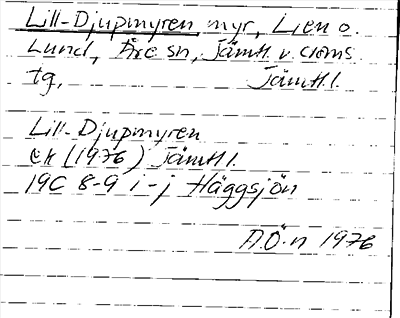 Lill-Djupmyren myr, Lien o.
Lund, Åre sn, Jämtl. v. doms
tg, Jämtl.
Lill-Djupmyren
ek (1976) Jämtl.
19C 8-9 i-j Häggsjön
A.Ö-n 1976